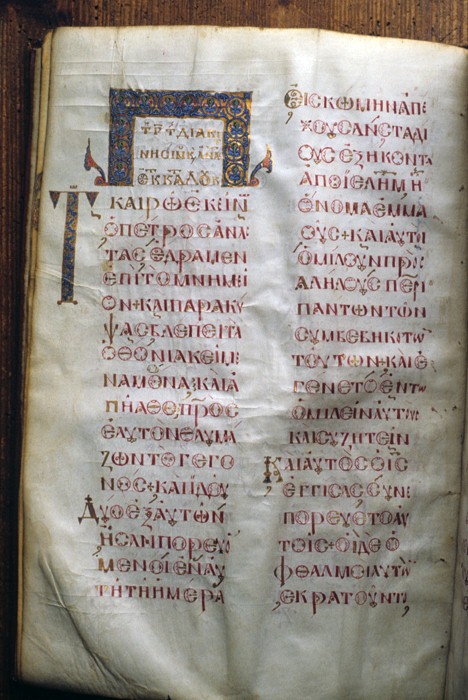 Τ
ΚΑΙΡΩ ΕΚΕΙΝ
Ο ΠΕΤΡΟC ΑΝΑ
ΤΑC ΕΔΡΑΜΕΝ
ΕΠΙ ΤΟ ΜΝΗΜΕΙ
ΟΝ+ΚΑΙ ΠΑΡΑΚΥ
ΨΑC ΒΛΕΠΕΙ ΤΑ
ΟΘΟΝΙΑ ΚΕΙΜΕ
ΝΑ ΜΟΝΑ:ΚΑΙ Α
ΠΗΛΘΕ ΠΡΟC
ΕΑΥΤΟΝ ΘΑΥΜΑ
ΖΩΝ ΤΟ ΓΕΓΟ
ΝΟC+ΚΑΙ ΙΔΟΥ
ΔΥΟ ΕΞ ΑΥΤΩΝ
ΗCΑΝ ΠΟΡΕΥΟ
ΜΕΝΟΙ ΕΝ ΑΥ
ΤΗ ΤΗ ΗΜΕΡΑ
ΕΙC ΚΩΜΗΝ ΑΠΕ
ΧΟΥCΑΝ CΤΑΔΙ
ΟΥC ΕΞΗΚΟΝΤΑ
ΑΠΟ ΙΕΛΗΜ Η
ΟΝΟΜΑ ΕΜΜΑ
ΟΥC+ΚΑΙ ΑΥΤΟΙ
ΩΜΙΛΟΥΝ ΠΡΟC
ΑΛΗΛΟΥC ΠΕΡΙ
ΠΑΝΤΩΝ ΤΩΝ
CΥΜΒΕΒΗΚΟΤΩ
ΤΟΥΤΩΝ+ΚΑΙ Ε
ΓΕΝΕΤΟ ΕΝ ΤΩ
ΟΜΙΛΕΙΝ ΑΥΤΟΥC
ΚΑΙ CΥΖΗΤΕΙΝ
ΚΑΙ ΑΥΤΟC Ο ΙC
ΕΓΓΙCΑC CΥΝΕ
ΠΟΡΕΥΕΤΟ ΑΥ
ΤΟΙC+ΟΙ ΔΕ Ο
ΦΘΑΛΜΟΙ ΑΥΤΩ
ΕΚΡΑΤΟΥΝΤΟ